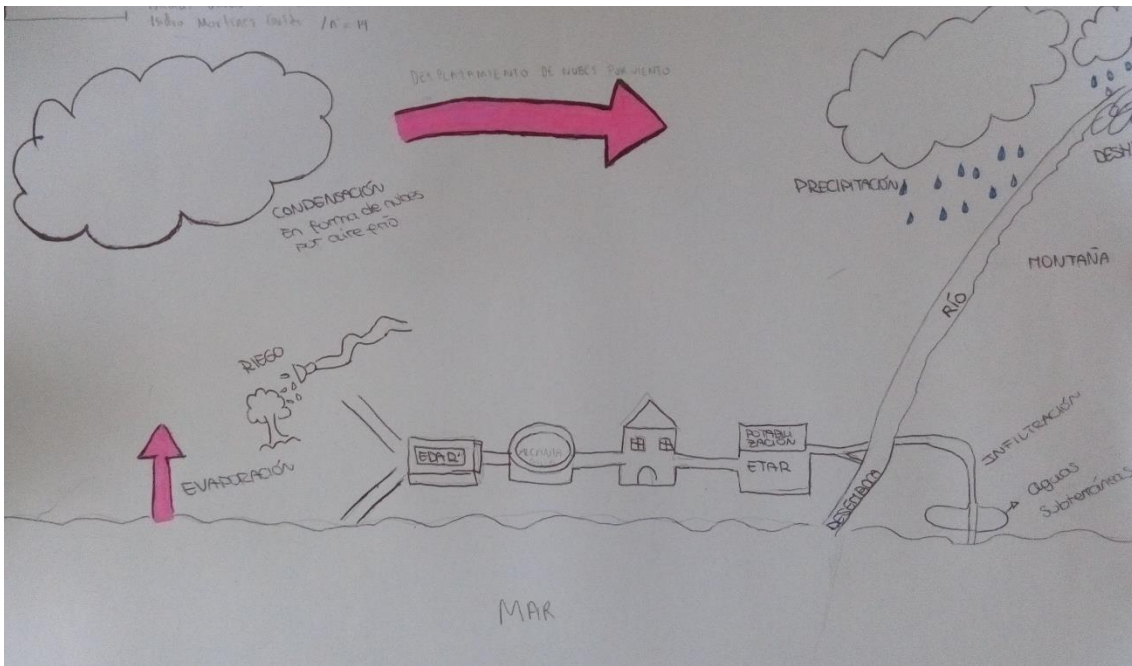 DESPLAZAMIENTO DE NUBES POR VIENTO
CONDENSACIÓN
en forma de nubes
por aire frío
PRECIPITACIÓN
MONTAÑA
RÍO
RIEGO
EVAPORACIÓN
EDAR
POTABILI
ZACIÓN
ETAR
DESEMBOCA
INFILTRACIÓN
aguas
subterráneas
MAR